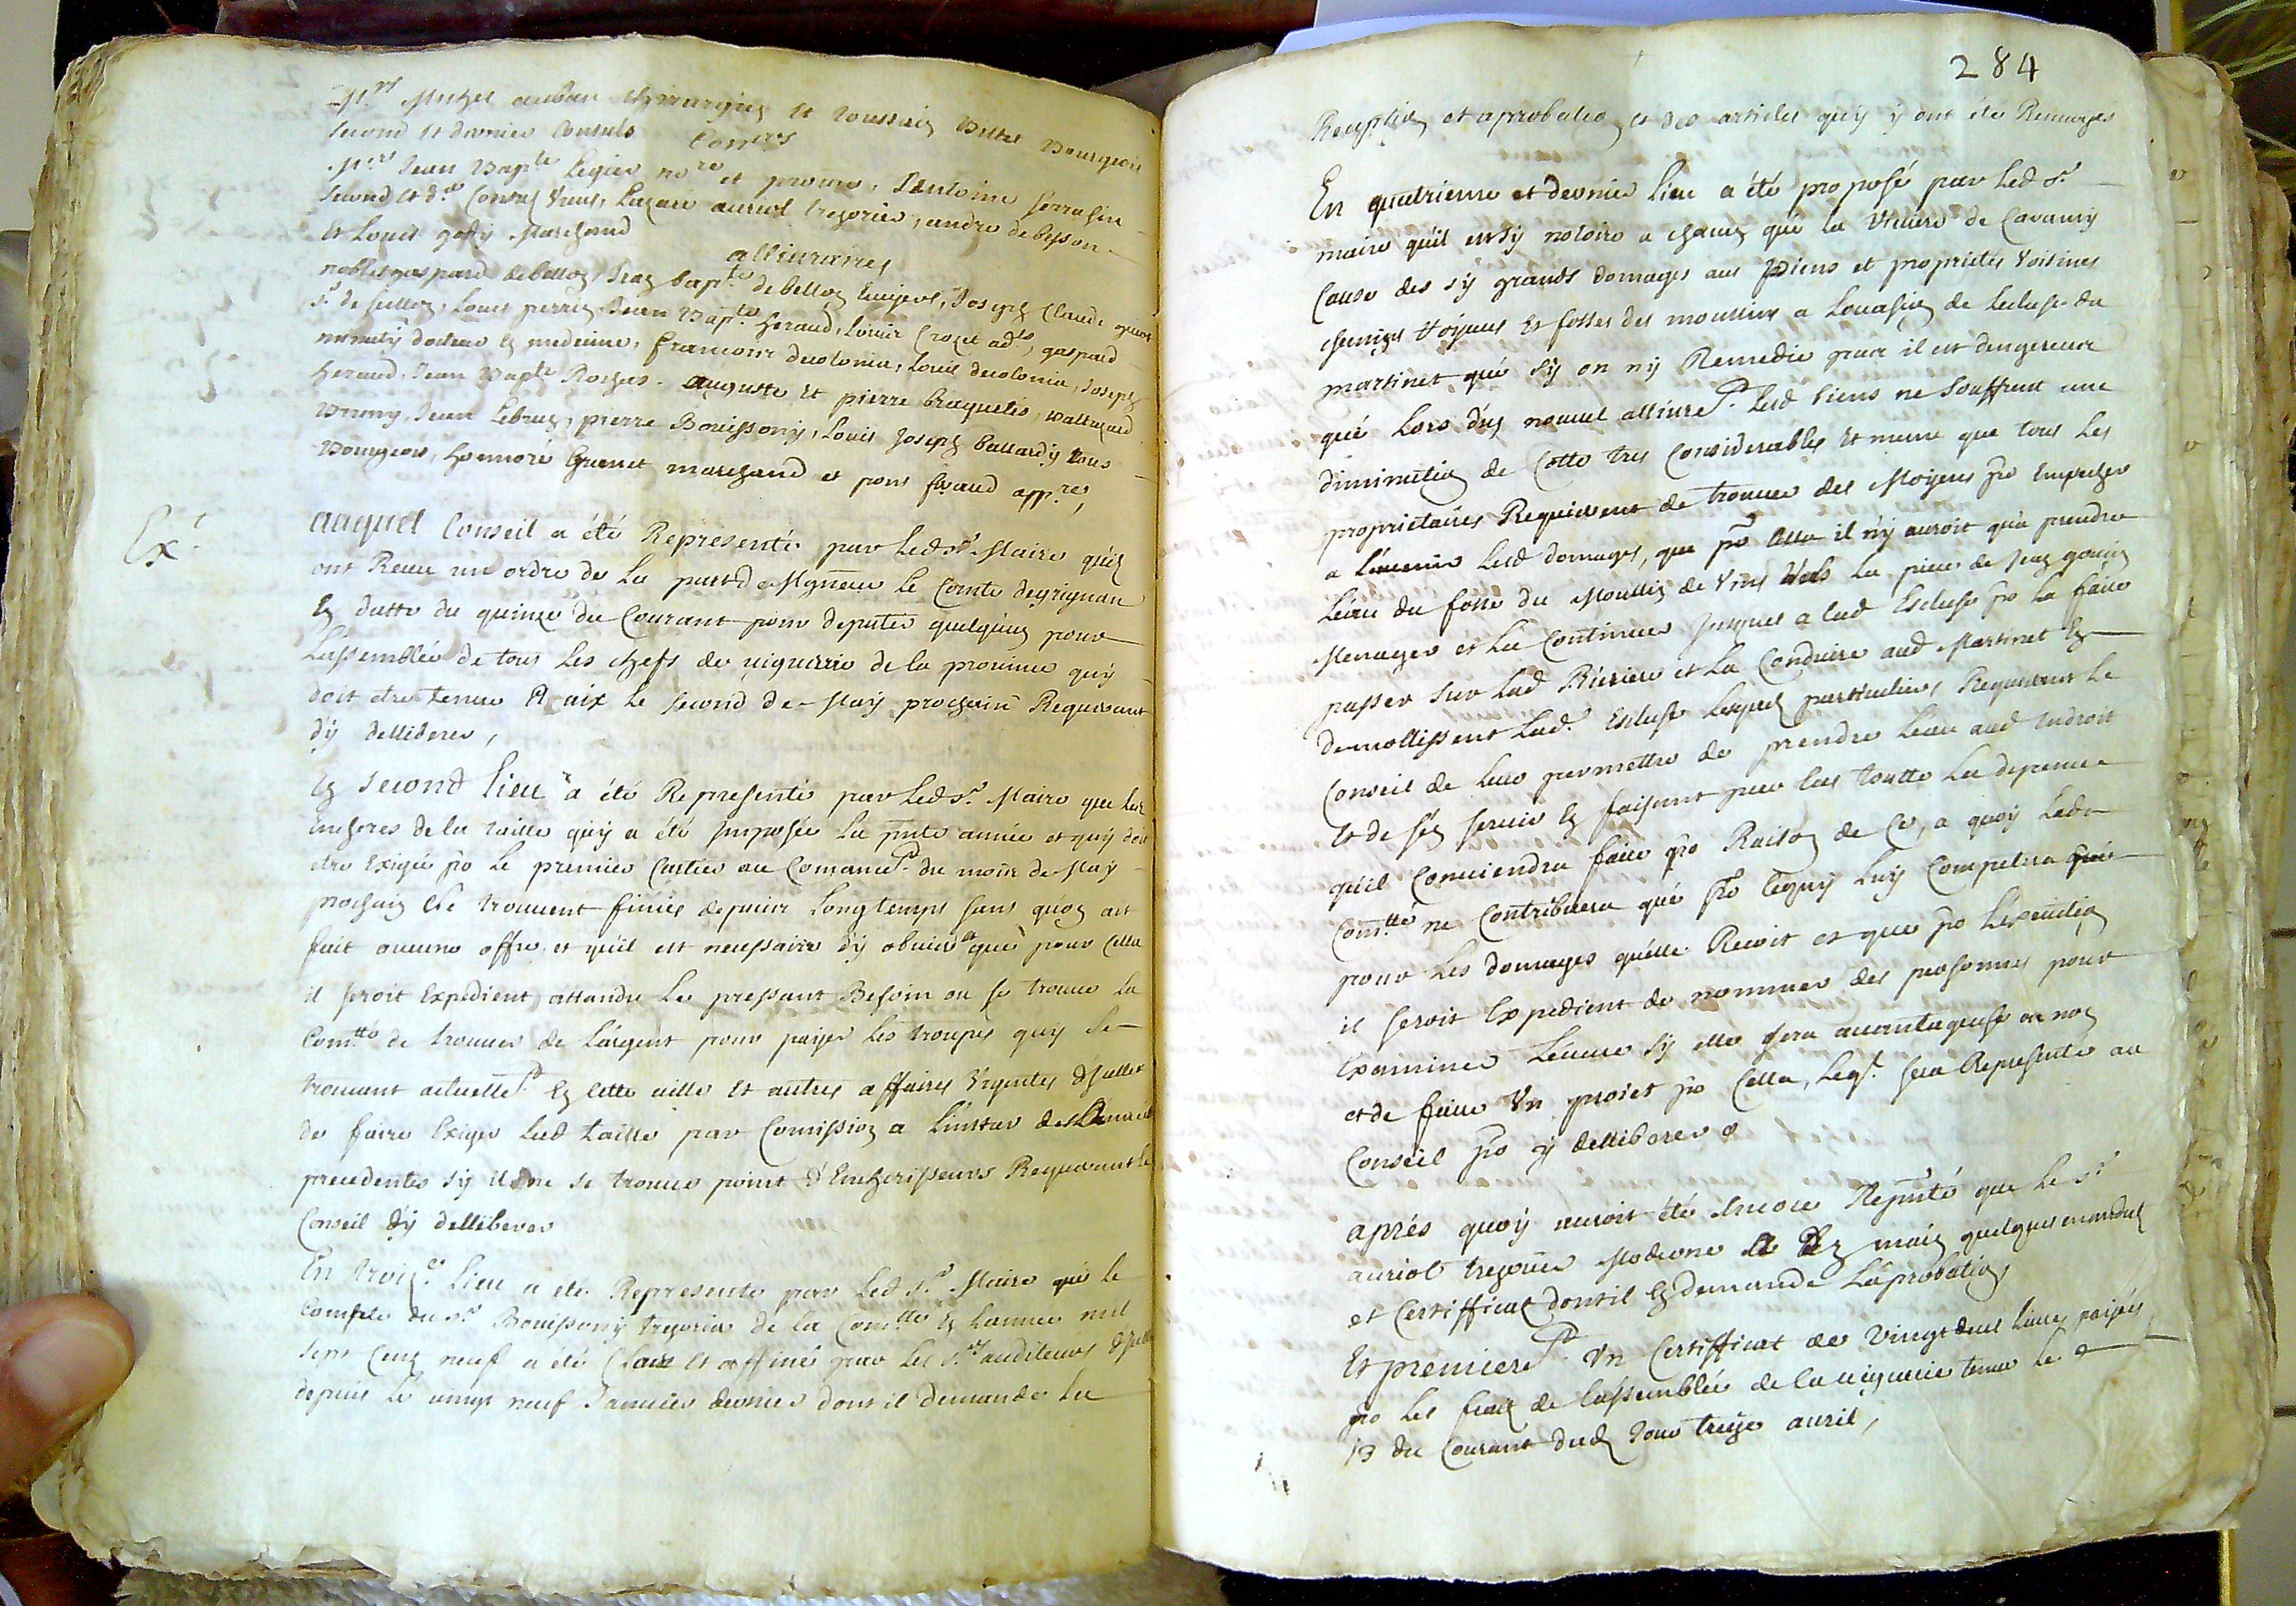 Mrs Michel auban chirurgien et toussain Bellet Bourgeois
second et dernier Consuls
Conrs
Mrs Jean Bapte Legier nore et procure, Antoine serrasin
second et dr Consul vieux, Lazare auriol trezorier, andré debesson
et Louis gody Marchand
allivrantes
nobles gaspard debelloy, Jean bapte de belloy Ecuyers, Joseph Claude
sr de seilloy, Louis perrin, Jean Bapte heraud, Louis Crozet adts, gaspard
docteur en medecine, francois decolonia, Louis decolonia, Joseph
heraud, Jean Bapte Rochas. auguste et pierre braquetis,
Jean Lebrun, pierre Bouissony, Louis Joseph ballardy tous
Bourgeois, honnoré Gremet marchand et pons fizaud appre,
Ext
auquel Conseil a été Representé par led sr Maire quils
ont Receu un ordre de la part de Mgneur le Comte degrignan
en datte du quinze du Courant pour deputer quelquun pour
Lassemblée de tous les chefs de viguerie de la province quy
doit etre tenue A aix le second de May prochain Requerant
dy delliberer,
en second lieu a été Representé par led sr Maire que les
Encheres de la taille quy a été Imposée la pnte année et quy doit
etre exigée po le premier Cartier au Comancet du mois de May
prochain se trouvent finies depuis Longtemps sans quon ait
fait aucune offre et quil est necessaire dy obvier et que pour Cella
il seroit Expedient attandu Le pressant Besoin ou se trouve la
Comtté de trouver de Largent pour payer les troupes quy se
trouvant actuellet en cette ville et autres affaires Urgentes dicelle
de faire Exiger lad taille par Comission a Linstar des années
precedentes sy il ne se trouve point d'Encherisseurs Requerant le
Conseil dy delliberer
En troize lieu a été Representé par led sr Maire que le
Compte du sr Bouissony trezorier de la Comtté en Lannée mil
sept Cens neuf a été Clauz et affiné par les srs auditeurs dicelle
depuis le vingt neuf Janvier dernier dont il demande la
284
Reception et aprobation et des articles quy y ont été
En quatrieme et dernier lieu a été proposé par led sr
maire quil est sy notoire a chacun que la Riviere de Cavaury
Cause des sy grands domages aux Biens et proprietés voisines
chemins voysins et fosses des moullins a Loccasion de Lecluse du
martinet que sy on ny Remedie pas il est dangereux
que Lors d'un nouvel allivret lesd biens ne souffrent une
diminution de Cotte tres Considerables et meme que tous les
proprietaires Requierent de trouver des Moyens po Empecher
a lavenir lesd domages, que po Cella il ny auroit qua prendre
Leau du fosse du Moullin de vers la piece de Jean
Menager et la Continuer Jusques a lad Escluse po la faire
passer sur lad Riviere et la Conduire aud Martinet en
demollissent lad Escluse lesquels particuliers Requierent le
Conseil de leur permettre de prendre leau aud endroit
et de sen servir en faisant par eux toutte la depence
quil Conviendra faire po Raison de Ce, a quoy lade
Comtté ne Contribuera que po Cequy luy Competera
pour les domages quelle Recoit et que po lexecution
il seroit Expedient de nommer des personnes pour
Examiner Lœuvre sy elle sera avantageuse ou non
et de faire Un projet po Cella, leql sera Representé au
Conseil po y delliberer
après quoy auroit été encore Reputé que le sr
auriol trezorier Moderne a en main quelques mandats
et Certifficats dont il en demande Laprobation,
Et premieret Un Certifficat de Vingt deux livres payées
po les fraix de lassemblée de la viguerie tenue le
13 du Courant dud Jour treize avril,